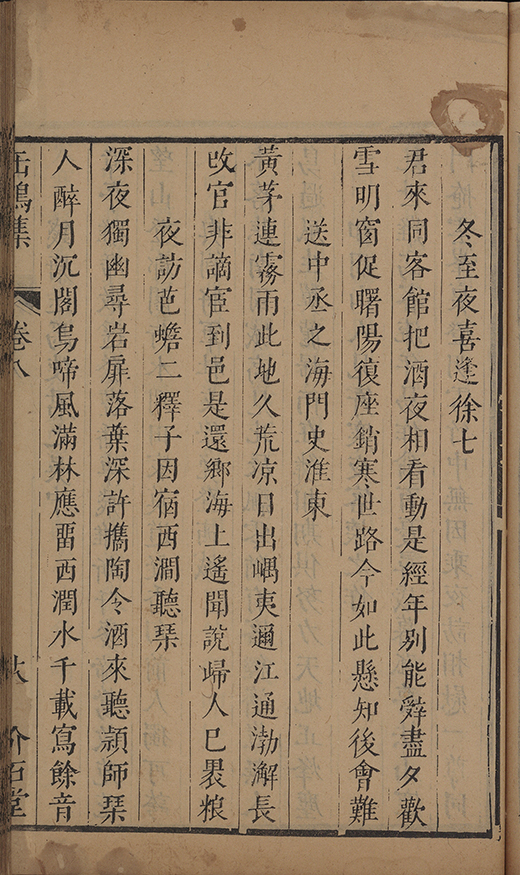 冬至夜喜逢徐七
君來同客館把酒夜相看動是經年別能辭盡夕歡
雪明窗促曙陽復座銷寒世路今如此懸知後會難
送中丞之海門史淮東
黃茅連霧雨此地久荒凉日出嵎夷邇江通渤澥長
改官非謫宦到邑是還鄉海上遙聞說歸人已褁粮
夜訪芭蟾二釋子因宿西澗聽琴
深夜獨幽尋岩扉落葉深許攜陶令酒來聽頴師琴
人醉月沉閣烏啼風滿林應畱西澗水千載寫餘音
缶鳴集
卷八
介石堂